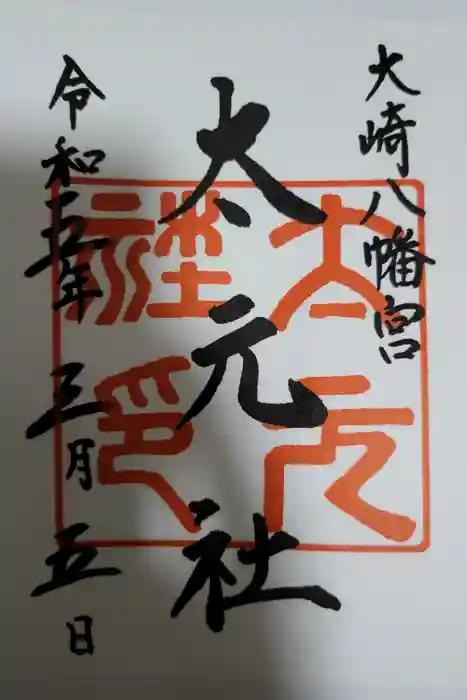 大崎八幡宮
太元社
令和五年三月五日
太元社印